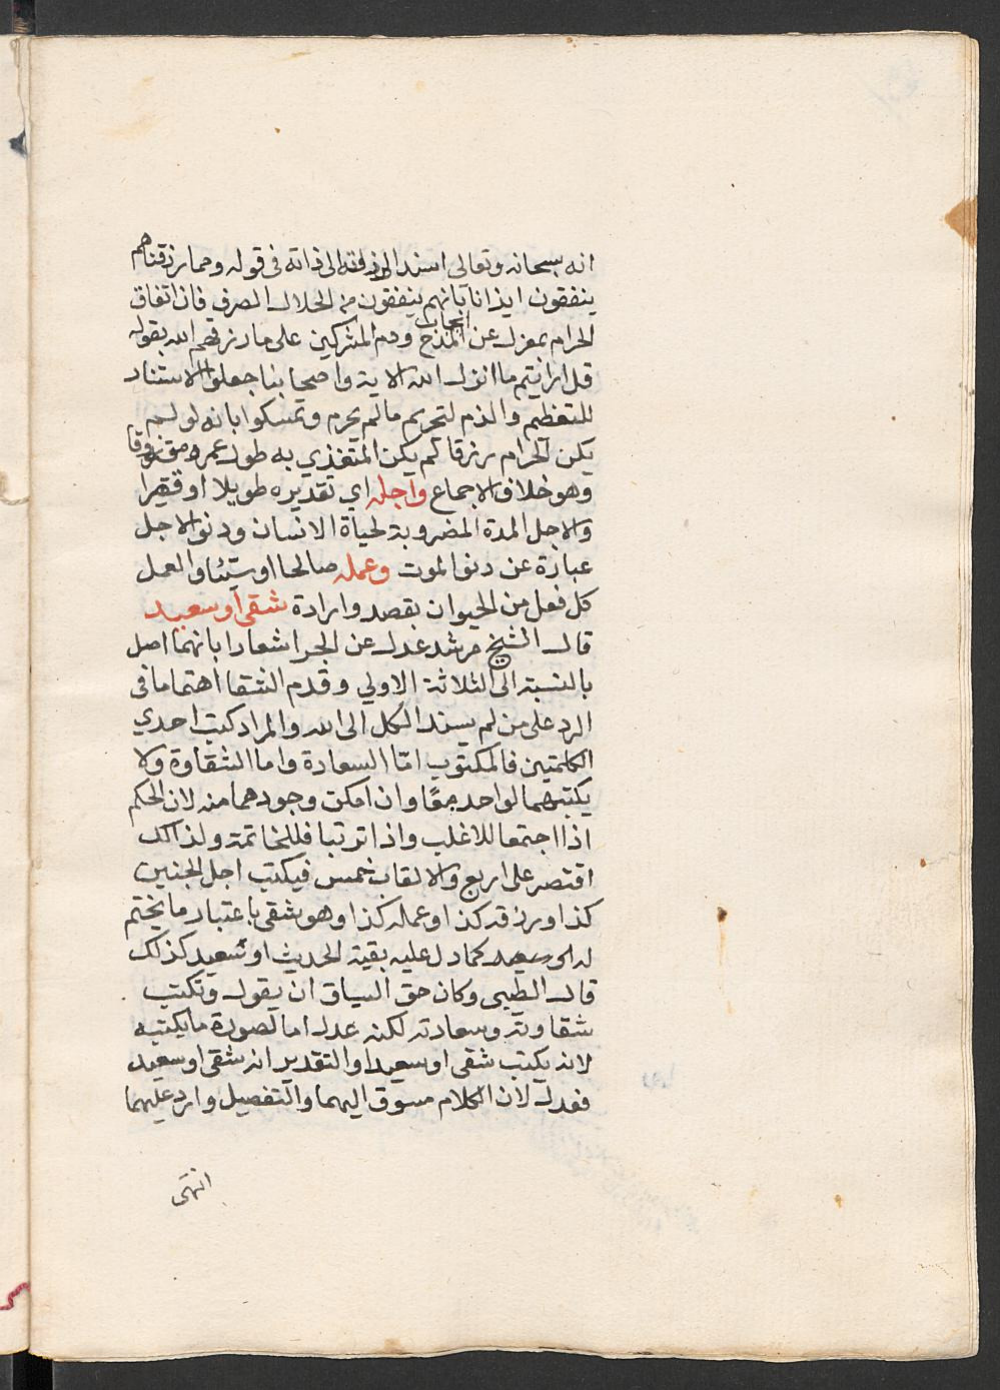 انه سبحانه وتعالى اسند الرزق الى ذاته فى قوله ومما رزقناهم
ينفقون ايذانا بانهم ينفقون من الحلال الصرف فان اتفاق
الحرام بمعزل عن ايجاب المدح وذم المشركين على ما رزقهم الله بقوله
قل ارايتم ما انزل الله الاية واصحابنا جعلوا الاستناد
للتعظيم والذم لتحريم مالم يحرم وتمسكوا بانه لو لم
يكن الحرام رزقا لم يكن المتغذي به طول عمره مرزوقا
وهو خلاف الاجماع واجله اي تقديره طويلا او قصيرا
والاجل المدة المضروبة لحياة الانسان ودنو الاجل
عبارة عن دنو الموت وعمله صالحا او سيئا والعمل
كل فعل من الحيوان بقصد وارادة شقى او سعيد
قال الشيخ مرشد عدل عن الجر اشعارا بانهما اصل
بالنسبة الى الثلاثة الاولي وقدم الشقا اهتماما فى
الرد على من لم يسند الكل الى الله والمراد كتب احدي
الكلمتين فالمكتوب امّا السعادة واما الشقاوة ولا
يكتبهما لواحد معًا وان امكن وجودهما منه لان الحكم
اذا اجتمعا للاغلب واذا ترتبا فللخاتمة ولذالك
اقتصر على اربع والا لقاب خمس فيكتب اجل الجنين
كذا ورزقه كذا وعمله كذا وهو شقى باعتبار ما يختم
له او سعيد كما دل عليه بقية الحديث او سعيد كذلك
قال الطيبى وكان حق السياق ان يقول وتكتب
شقاوته وسعادته لكنه عدل اما لصورة ما يكتبه
لانه يكتب شقى او سعيدا والتقدير انه شقى او سعيد
فعدل لان الكلام مسوق اليهما والتفصيل وارد عليهما
انتهى